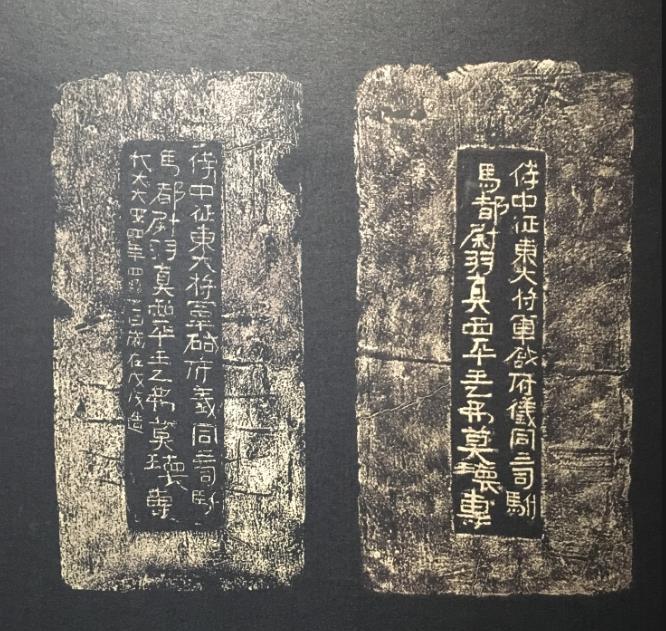 侍中征東大将軍啟府儀同三司駙
馬都尉羽真西平王乞弗莫瓌專
侍中征東大将軍啟府義同三司駙
馬都尉羽真西平王乞弗莫瓌專
大代太安四年四月日歲在戊戌造